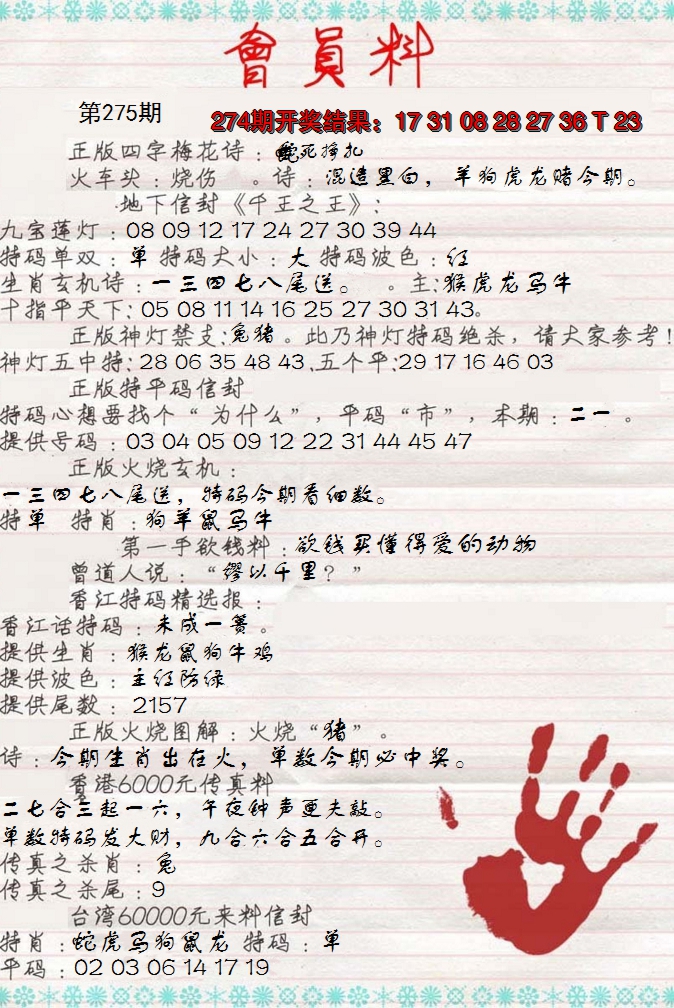 會員料
第275期
274期开奖结果：17 31 08 28 27 36 T 23
正版四字梅花诗：死挣扎
火车头：烧伤 。诗：混造黑白，羊狗虎龙赌今期。
地下信封《千王之王》：
九宝莲灯：08 09 12 17 24 27 30 39 44
特码单双：单 特码大小：大 特码波色：红
生肖玄机诗：一三四七八尾送。 。主:猴虎龙马牛
十指平天下：05 08 11 14 16 25 27 30 31 43。
正版神灯禁支:兔猪。此乃神灯特码绝杀，请大家参考！
神灯五中特:28 06 35 48 43.五个平:29 17 16 46 03
正版特平码信封
特码心想要找个“为什么”，平码“市”，本期：二一。
提供号码：03 04 05 09 12 22 31 44 45 47
正版火烧玄机：
一三四七八尾送，特码今期看细数。
特单 特肖：狗羊鼠马牛
第一手欲钱料：欲钱买懂得爱的动物
曾道人说：“缪以千里？”
香江特码精选报：
香江话特码：未成一篑。
提供生肖：猴龙鼠狗牛鸡
提供波色：主红防绿
提供尾数：2157
正版火烧图解：火烧“猪”。
诗：今期生肖出在火，单数今期必中奖。
香港6000元传真料
二七合三起一六，午夜钟声更夫敲。
单数特码发大财，九合六合五合开。
传真之杀肖：兔
传真之杀尾：9
台湾60000元来料信封
特肖：蛇虎马狗鼠龙 特码：单
平码：02 03 06 14 17 19